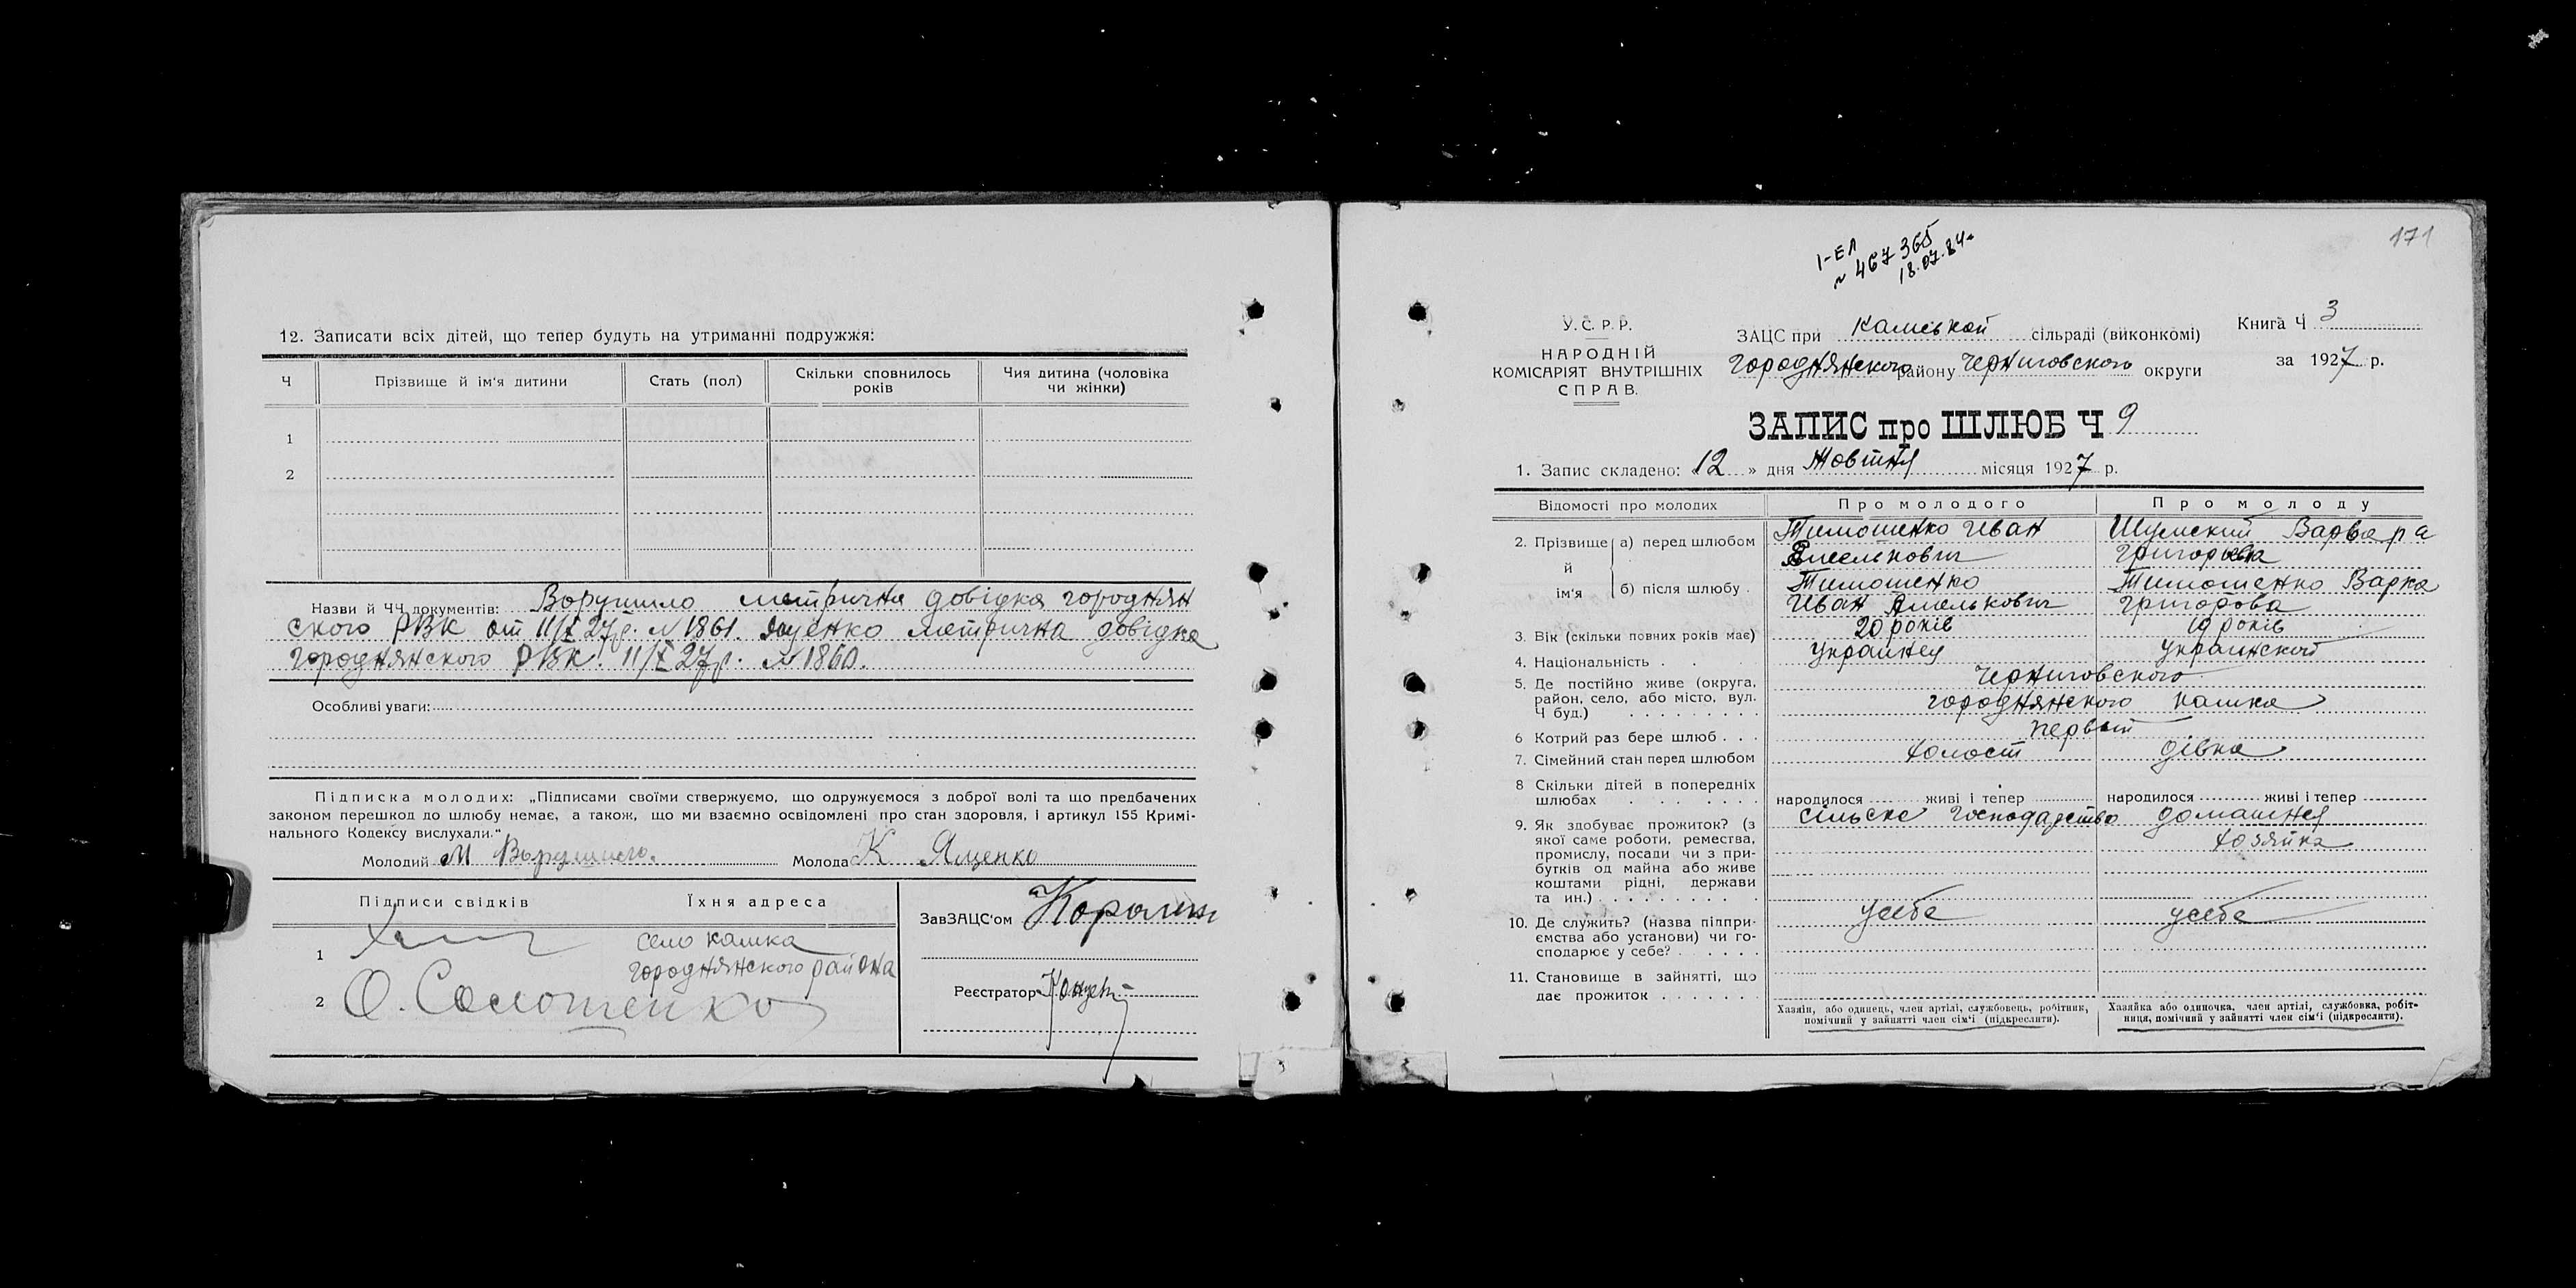 12. Записати всіх дітей, що тепер будуть на утриманні подружжя:
Ч
Прізвище й ім'я дитини
Стать (пол)
Скільки сповнилось років
Чия дитина (чоловіка чи жінки)
1
2
Назви й ЧЧ документів: Ворушило метрична довідка городнян
ского РВК от 11/X 27р. № 1861. Яценко метрична довідка
городнянского РВК. 11/X 27р. № 1860.
Особливі уваги:
Підписка молодих: „Підписами своїми стверджуємо, що одружуємося з доброї волі та що предбачених
законом перешкод до шлюбу немає, а також, що ми взаємно освідомлені про стан здоровля, і артикул 155 Кримі-
нального Кодексу вислухали."
Молодий М Ворушило. Молода К Яценко
Підписи свідків Їхня адреса
1 село камка
городнянского района
2 О. Солошенко
ЗавЗАЦС'ом
Реєстратор
171
1-ЕЛ
№ 467365
18.07.84
У.С.Р.Р.
НАРОДНІЙ
КОМІСАРІЯТ ВНУТРІШНІХ
СПРАВ.
ЗАЦС при камськой сільраді (виконкомі)
городнянского району Черниговского округи
Книга Ч 3
за 1927 р.
ЗАПИС про ШЛЮБ Ч 9
1. Запис складено: «12» дня Жовтня місяця 1927 р.
Відомості про молодих
Про молодого
Про молоду
2. Прізвище й ім'я
а) перед шлюбом
Тимошенко Иван
Емельнович
Шумский Варвара
григорьевка
б) після шлюбу
Тимошенко
Иван Амелькович
Тимошенко Варка
григорова
3. Вік (скільки повних років має)
20 років
19 років
4. Національність
украинец
украинской
5. Де постійно живе (округа,
район, село, або місто, вул.
Ч буд.)
Черниговского
городнянского камка
6 Котрий раз бере шлюб
первый
7. Сімейний стан перед шлюбом
холост
дівка
8 Скільки дітей в попередніх
шлюбах
народилося живі і тепер
народилося живі і тепер
9. Як здобуває прожиток? (з
якої саме роботи, ремества,
промислу, посади чи з при-
бутків од майна або живе
коштами рідні, держави
та ин.)
сільске господарство
домашня
хозяйка
10. Де служить? (назва підпри-
ємства або установи) чи го-
сподарює у себе?
усебе
усебе
11. Становище в зайнятті, що
дає прожиток
Хазяїн, або одинець, член артілі, службовець, робітник,
помічний у зайнятті член сім'ї (підкреслити).
Хазяйка або одиночка, член артілі, службовка, робіт-
ниця, помічний у зайнятті член сім'ї (підкреслити).